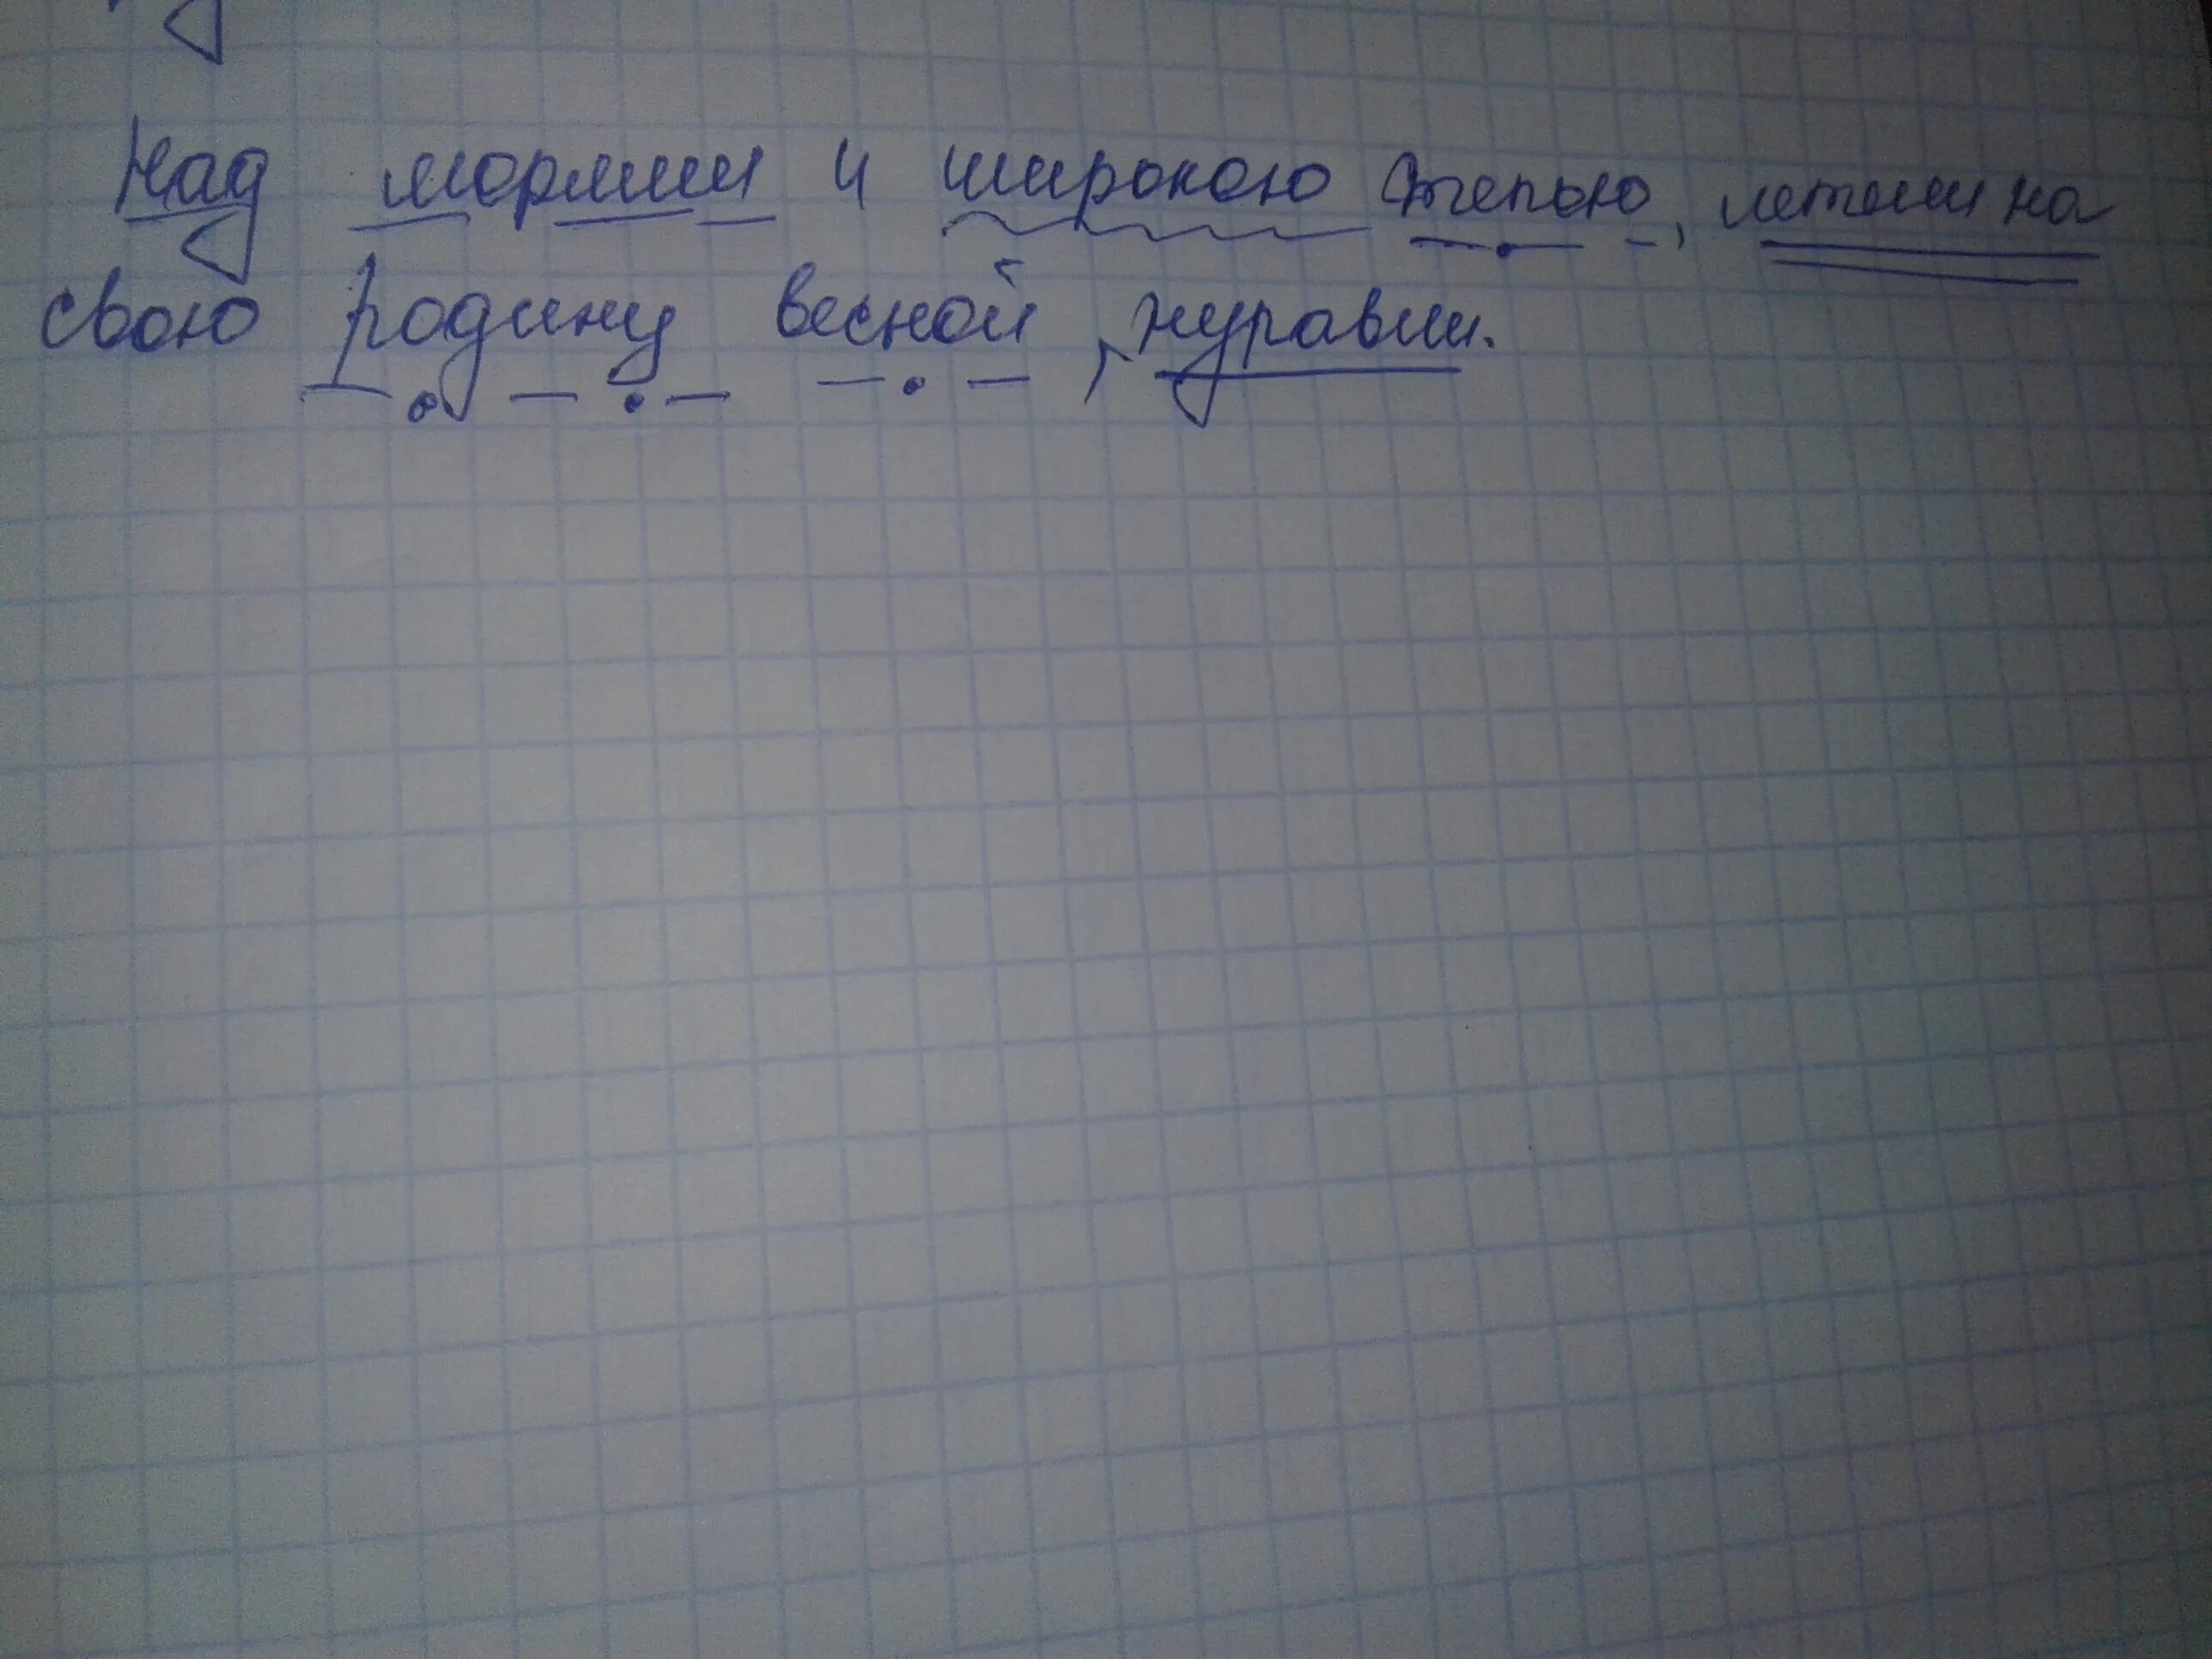 Над морями и широкою степью, летели на
свою родину весной, журавли.